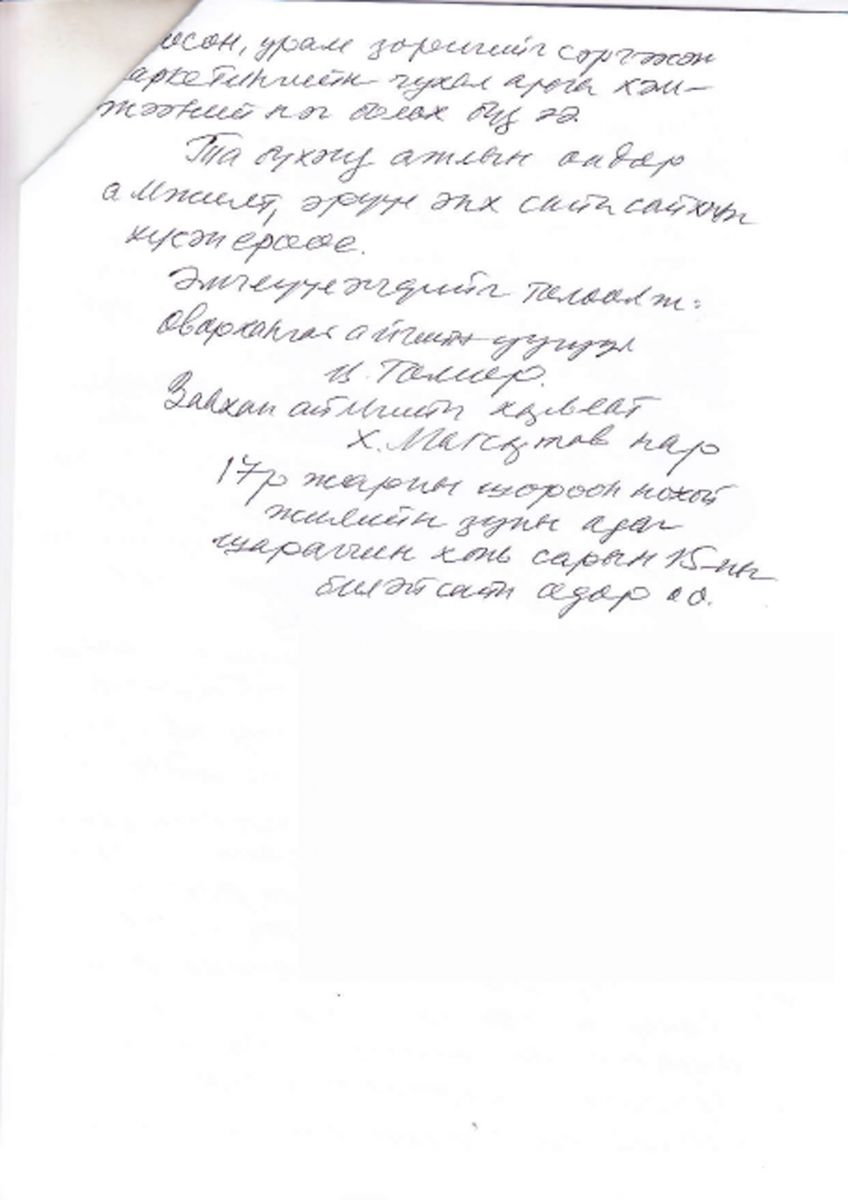 осон, урам зоригийг сэргээсэн
аркетингийн чухал арга хэм-
жээний нэг болох буй за
Та бүхэнд ажлын өндөр
амжилт, эрүүл энх сайн сайхныг
хүсэн ерөөе.
Эмчлүүлэгчдийг төлөөлж:
Өвөрхангай аймгийн
Ц. Төмөр.
Завхан аймгийн
Х. Магсутов нар
17р жарны шороон нохой
жилийн зуны адаг
шарагчин хонь сарын 15-ны
билэгт сайн өдөр оо.